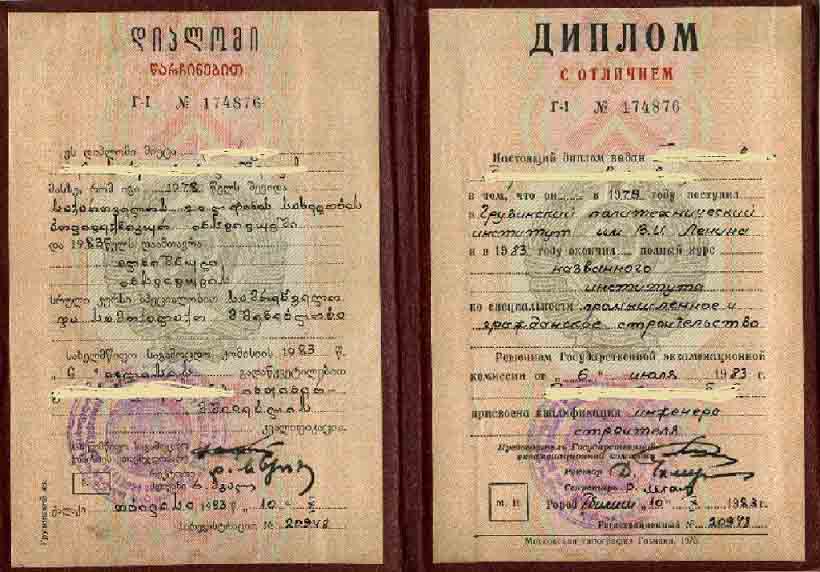 დიპლომი
წარჩინებით
Г-I № 174876
ეს დიპლომი მიეცა
მასზე, რომ იგი 1978 წელს შევიდა
საქართველოს ვ.ი. ლენინის სახელობის
პოლიტექნიკურ ინსტიტუტში
და 1983 წელს დაამთავრა
აღნიშნული
ინსტიტუტის
სრული კურსი სპეციალობით სამრეწველო
და სამოქალაქო მშენებლობა
სახელმწიფო საგამოცდო კომისიის 1983 წ.
" 6 " ივლისის გადაწყვეტილებით
ინჟინერ-
მშენებლის
კვალიფიკაცია
სახელმწიფო საგამოცდო
კომისიის თავმჯდომარე
რექტორი
მდივანი
ქალაქი თბილისი 1983 წ. " 10 "
სარეგისტრაციო № 20948
Грузинский яз.
ДИПЛОМ
С ОТЛИЧИЕМ
Г-I № 174876
Настоящий диплом выдан
в том, что он в 1978 году поступил
в Грузинский политехнический
институт им В.И Ленина
и в 1983 году окончил полный курс
названного
института
по специальности промышленное и
гражданское строительство
Решением Государственной экзаменационной
комиссии от " 6 " июля 1983 г.
присвоена квалификация инженера
строителя
Председатель Государственной
экзаменационной комиссии
Ректор
Секретарь
М. П.
Город Тбилиси " 10 " 1983 г.
Регистрационный № 20948
Московская типография Гознака. 1975.